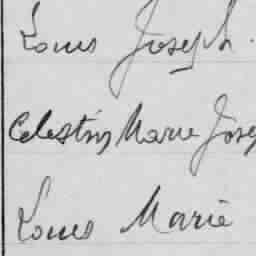 Louis Joseph.
Celestin Marie Jose
Louis Marie